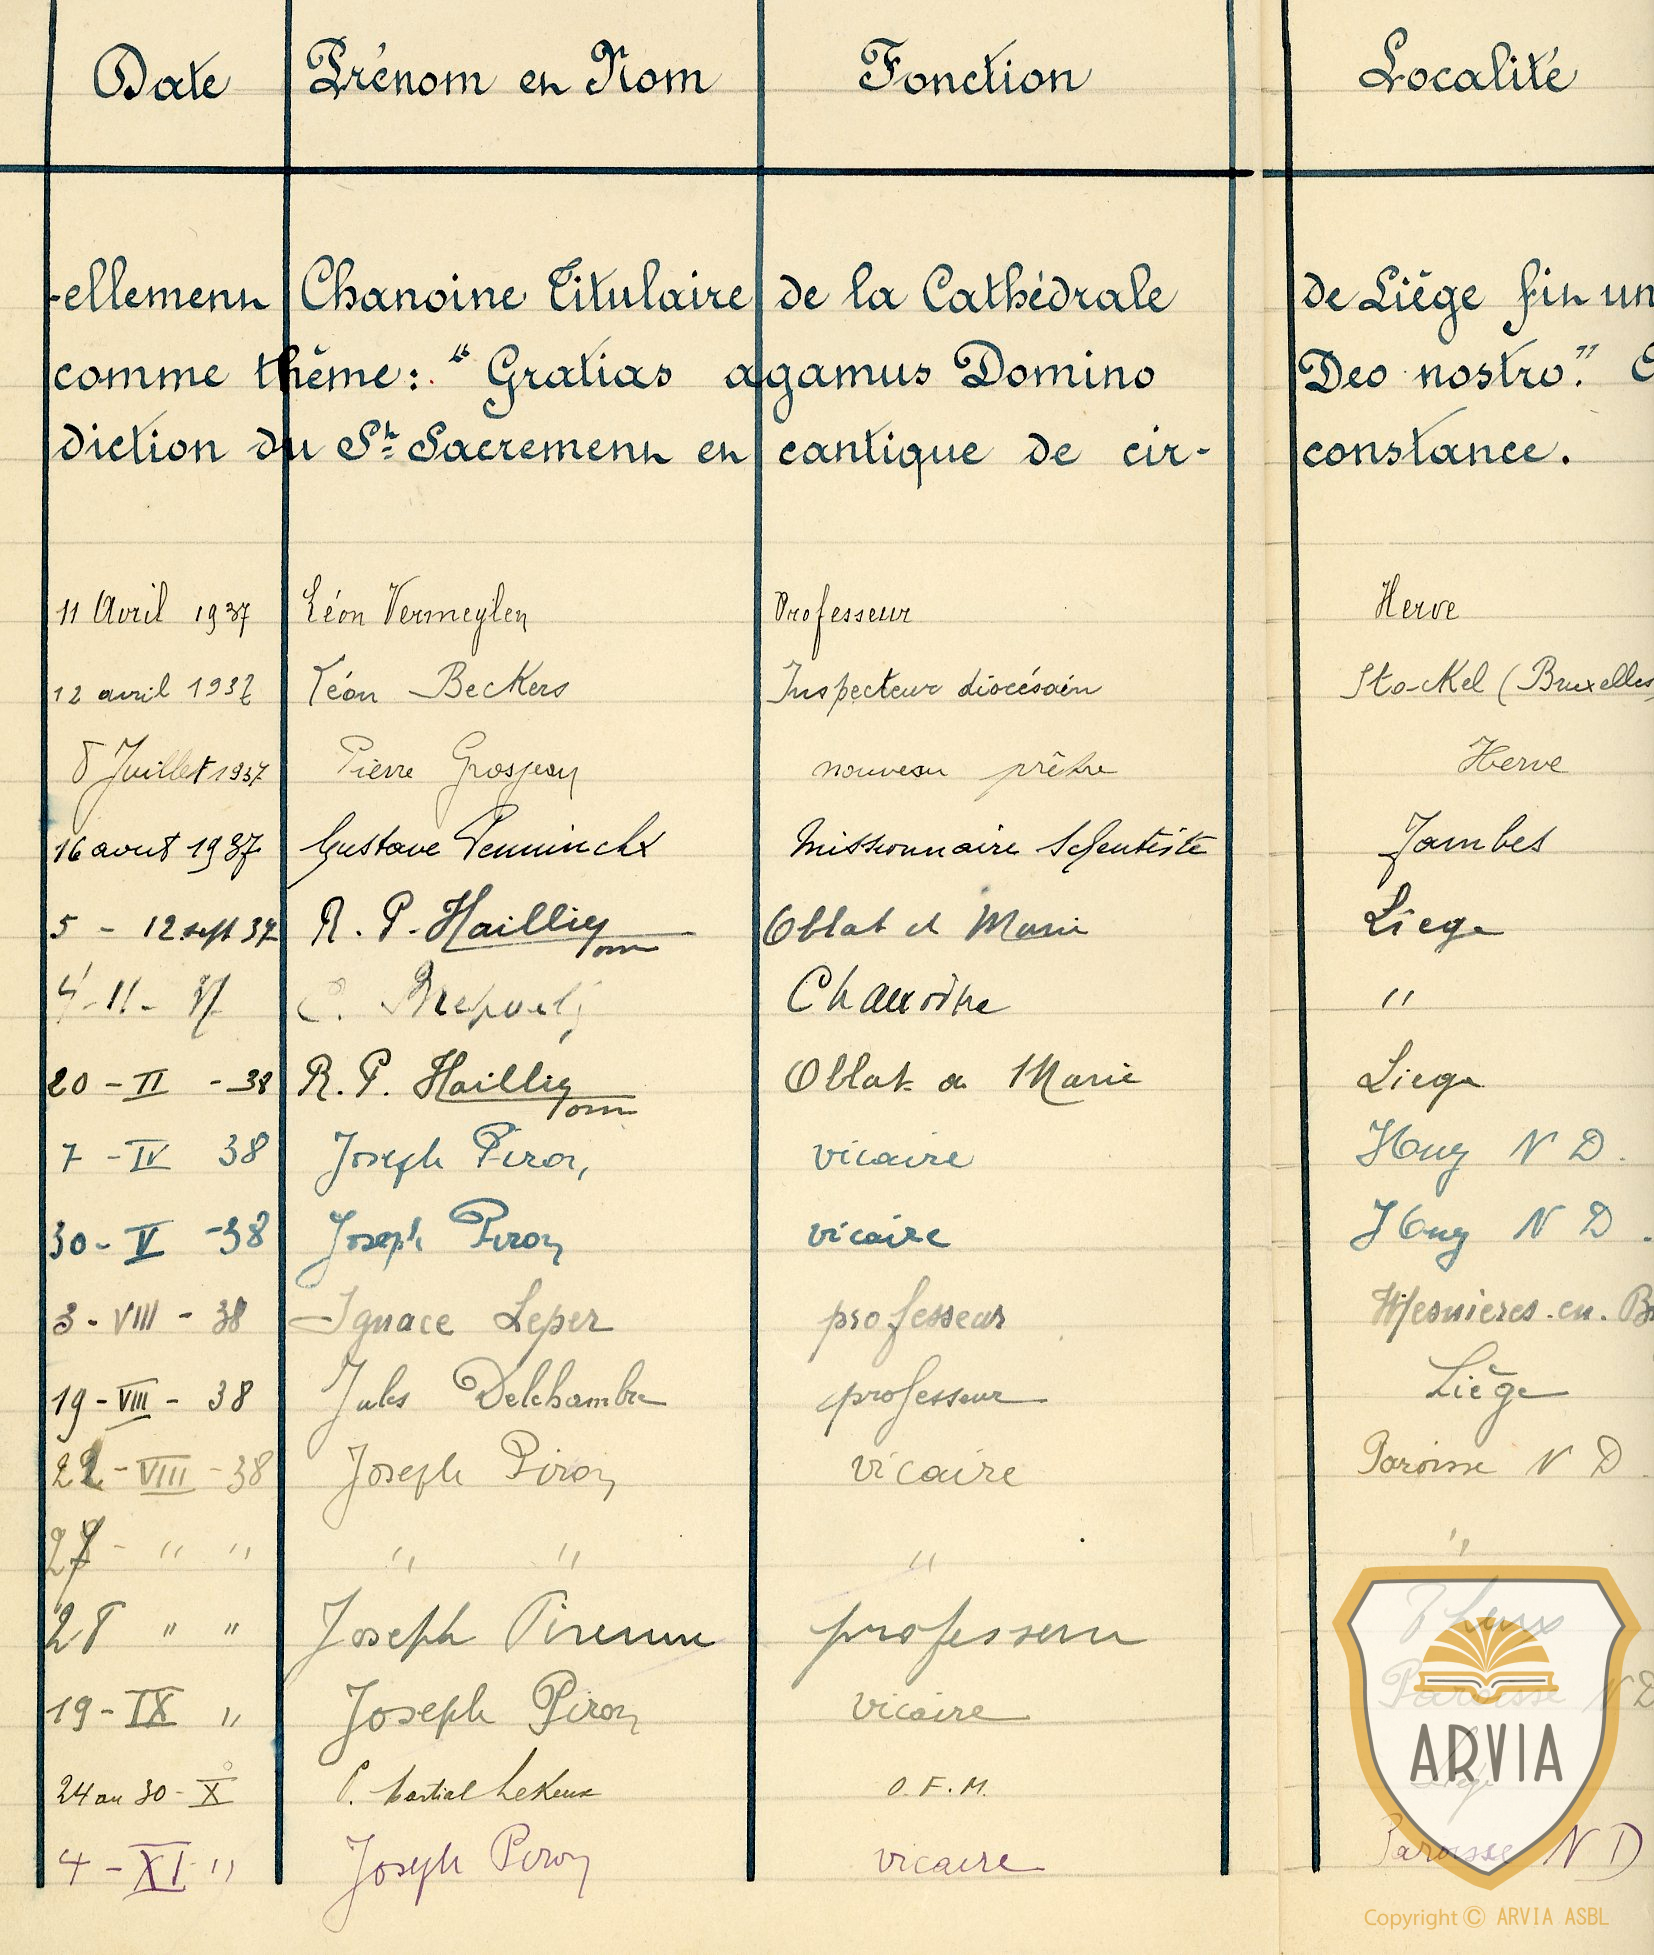 Date Prénom et Nom Fonction Localité
-ellement Chanoine Titulaire de la Cathédrale de Liège fit un
comme thême: "Gratias agamus Domino Deo nostro."
diction du St Sacrement et cantique de cir- constance.
11 Avril 1937 Léon Vermeylen Professeur Herve
12 avril 1937 Léon Beckers Inspecteur diocésain Stockel (Bruxelles)
8 Juillet 1937 Pierre Grosjean nouveau prêtre Herve
16 aout 1937 Gustave Penninckx Missionnaire Scheutiste Jambes
5 - 12 sept 37 R. P. Haillier omi Oblat de Marie Liege
4-11-37 C. Chanoine "
20 - II - 38 R. P. Haillier omi Oblat de Marie Liege
7 - IV 38 Joseph Piron, vicaire Huy N D.
30 - V - 38 Joseph Piron vicaire Huy N D.
3 - VIII - 38 Ignace Leper professeur Mesnieres-en-
19 - VIII - 38 Jules Delchambre professeur Liège
22 - VIII - 38 Joseph Piron vicaire Paroisse N D
27 - " " " " " "
28 " " Joseph Pirenne professeur Theux
19 - IX " Joseph Piron vicaire Paroisse N D
24 au 30 - X P. Martial Lekeux O. F. M.
4 - XI " Joseph Piron vicaire Paroisse N D
ARVIA
Copyright © ARVIA ASBL